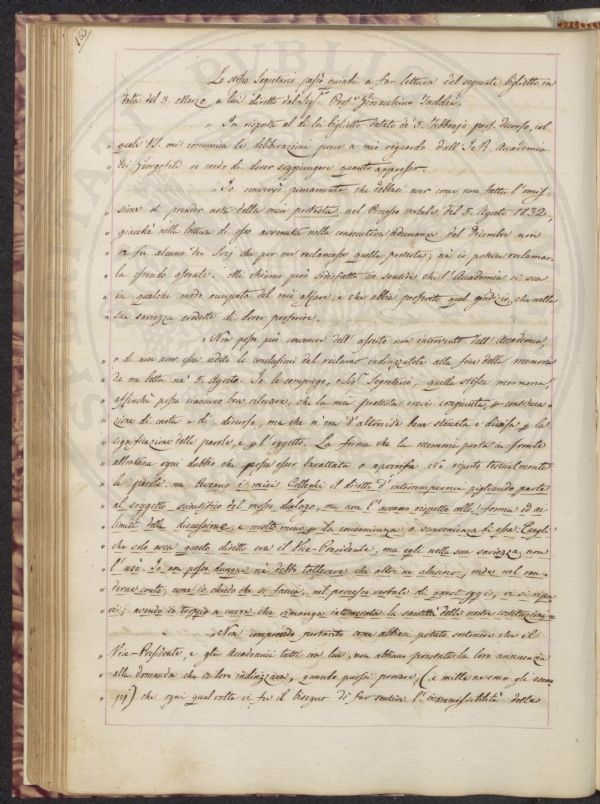 Lo stesso Segretario passò quindi a far lettura del seguente biglietto in
data del 2. Marzo a lui diretto dal Sig.r Prof.re Gioacchino Taddei.
" In risposta al di lei biglietto datato de' 5. Febbrajo pros. decorso, col
" quale VS. mi comunica le deliberazioni prese a mio riguardo dall' I. e R. Accademia
" dei Georgofili io credo di dover soggiungere quanto appresso.
" Io converrò pienamente che debbasi aver come non fatta l' omis=
" sione di prender nota della mia protesta nel Processo verbale del 5. Agosto 1832,
" giacchè nella lettura di esso avvenuta nella consecutiva adunanza del Dicembre non
" vi fu alcuno dei Socj che per me reclamasse quella protesta; nè io poteva reclamar=
" la essendo assente. Mi chiamo però sodisfatto in sentire che l' Accademia si sia
" in qualche modo occupata del mio affare, e che abbia proferito quel giudizio, che nella
" sua saviezza credette di dover proferire.
" Non posso poi convenire dell' asserto non intervento dell' Accademia,
" e di non aver essa udito le conclusioni del reclamo indirizzatole alla fine della memoria
" da me letta ne' 5. Agosto. Io le compiego, Sig.r Segretario, quella stessa memoria
" affinchè possa ciascuno ben rilevare, che la mia protesta eravi congiunta per
" zione di carta e di discorso, ma che n' era d' altronde bene staccata e divisa per la
" significazione delle parole, e per l' oggetto. La firma che la memoria porta in fronte
" allontana ogni dubbio che possa esser barattata o apocrifa. Ne riporto testualmente
" le parole. = Avevano i miei Colleghi il diretto d' interrompermi pigliando parte
" al soggetto scientifico del mosso dialogo, ma non l' avevano rispetto alla forma ed ai
" limiti della discussione, e molto meno per la convenienza o sconvenienza di essa. Quegli
" che solo avea questo diretto era il Vice-Presidente, ma egli nella sua saviezza, non
" l' usò. Io non posso dunque nè debbo tollerare che altri ne abusino, onde nel ren=
" derne conto, come io chiedo che si faccia, nel processo verbale di quest' oggi, vi si ripa=
" ri; avendo io troppo a cuore che rimanga intemerata la santità delle nostre costituzioni =
" Non comprendo pertanto come abbian potuto sostenere che il
" Vice-Presidente, e gli Accademici tutti con lui, non abbiano prestata la loro annuenza
" alla domanda che io loro indirizzava, quando puossi provare, (e mille ne sono gli esem=
" pj) che ogni qual volta vi fu il bisogno di far sentire l' inammissibilità della